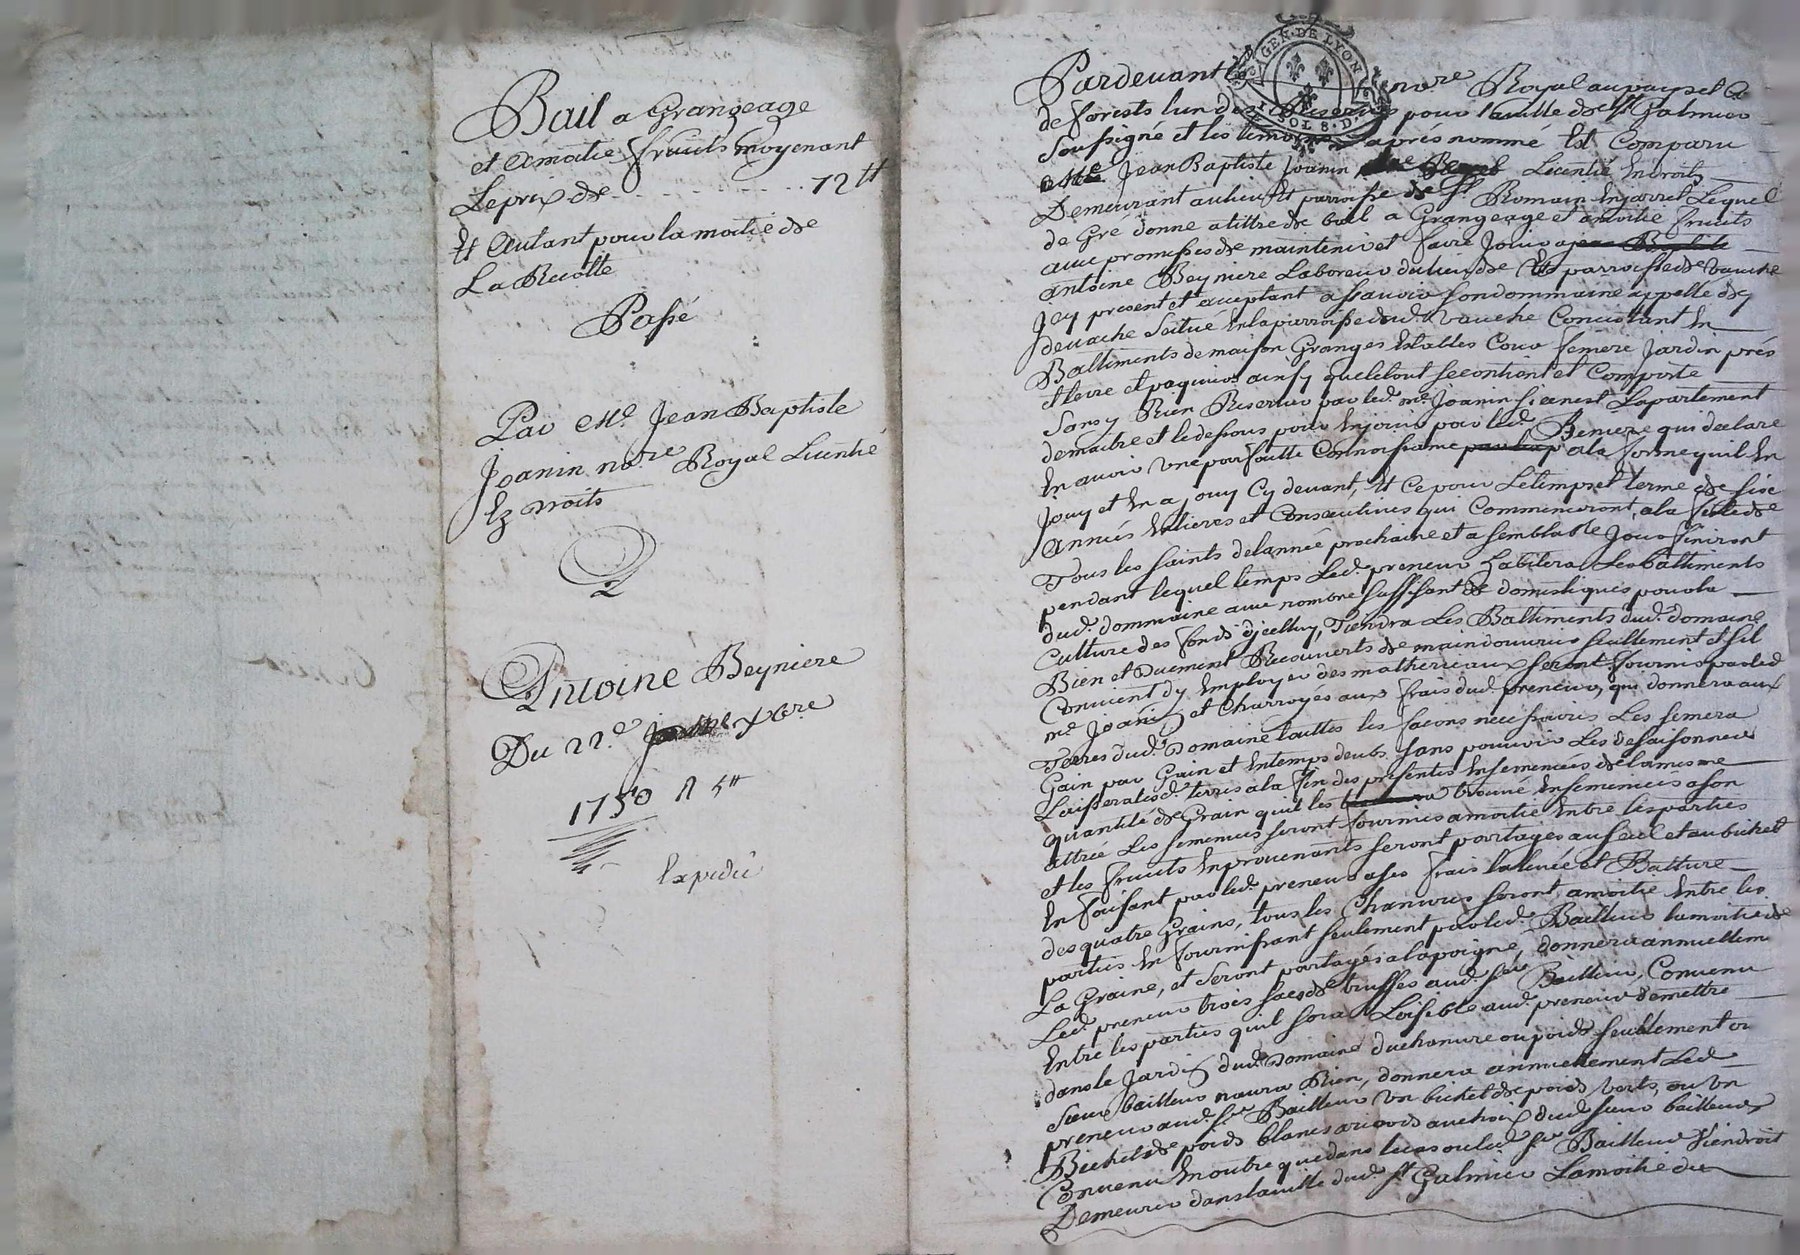 Bail a Grangeage
et amoitie fruits moyenant
Le prix de - - - - - - 72tt
Et Autant pour la moitié de
La Recolte
Passé
Par Me. Jean Baptiste
Joanin nore. Royal Licentié
Ez Droits
Antoine Beyniere
Du 22e xbre
1750 R 5tt
Expedié
GEN. DE LYON
SOLS. D.
Pardevant le nore Royal au pays et
de forests lun des Reservés pour la ville de St Galmier
Soussigné et les temoins après nommé Est Comparu
Me. Jean Baptiste Joanin Licentié Endroits
Demeurant au lieu Et parroisse de St. Romain Enjarret Lequel
de Gré donne atiltre de bail a Grangeage et amoitie fruits
avec promesses de maintenir et faire Jouir a
antoine Beyniere Laboureur du lieu de Et parroisse de vauche
Jcy present et acceptant assavoir son dommaine appellé de
devache Scitué En la parroisse dud. vauche Concistant En
Battiments de maison Granges Estables Cour femere Jardin prés
et terre et paquiers ainsy que le tout se contient et Comporte
Sans y Rien Reserver par led. me Joanin si ce nest Lapartement
de maitre et le dessous pour En jouir par led. Beniere qui declare
En avoir une parfaitte Connoissance a la forme quil En
Jouy et En a jouy Cy devant, Et Ce pour Letemps et terme de six
années Entieres et Consecutives qui Commenceront a la feste de
Tous les Saints de lannée prochaine et a semblable Jour finiront
pendant lequel temps Led. preneur habitera Les battiments
dud. dommaine avec nombre suffisant de domestiques pour la
Culture des fonds djcelluy, Tiendra Les Battiments dud. domaine
Bien et Duement Recouverts de main douvrier seullement et sil
Convient dy Employer des matheriaux seront fournis par led
me Joanin et Charroyés aux frais dud. preneur, qui donnera aux
Terres dud. Domaine touttes les façons necessaires Les semera
Gain par Gain et Entemps deub sans pouvoir Les desaisonner
Laissera lesd. terres a la fin des presentes Ensemencées de la mesme
quantité de Grain quil les trouvé Ensemencées a son
Ettrée Les semences seront fournies a moitie Entre les parties
et les fruits En provenants seront partagés au seul et au bichet
En faisant par led. preneur a ses frais la levée et Batture
des quatre Grains, tous les Chanvres seront a moitie Entre les
parties En fournissant seulement par led. Bailleur la moitie de
La Graine, et seront partagés a la poigné, donnera annuellemt
Led. preneur trois sacs de truffes aud. sr Bailleur, Convenu
Entre les parties quil sera Loisible aud. preneur de mettre
dans le Jardin dud. Domaine du chanvre ou poids seullement ou
sieur bailleur naura Rien, donnera annuellement Led
preneur aud. sr Bailleur un bichet de poids verts, ou un
Bichet de poids blancs au choix dud. sieur bailleur
Convenu En outre que dans le cas ou led sr Bailleur viendroit
Demeurer dans la ville dud. St Galmier La moitié du